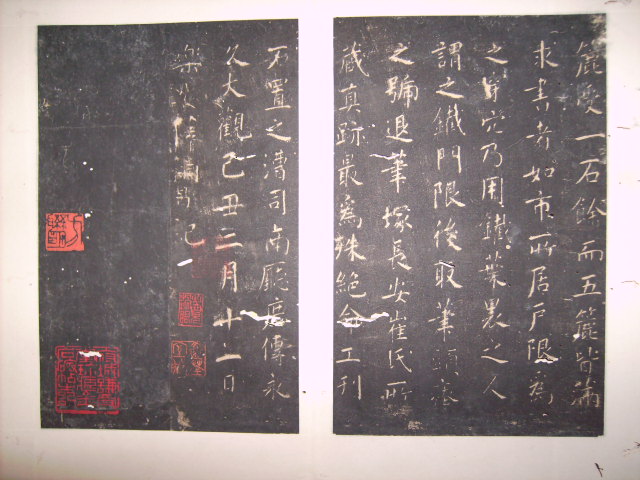 簏受一石餘而五簏皆滿
求書者如市所居戶限為
之穿穴乃用鐵葉裹之人
謂之鐵門限後取筆頭瘞
之號退筆塚長安崔氏所
藏真跡最為殊絕命工刊
石置之漕司南廳庶傳永
久大觀己丑二月十一日
樂安薛嗣昌記